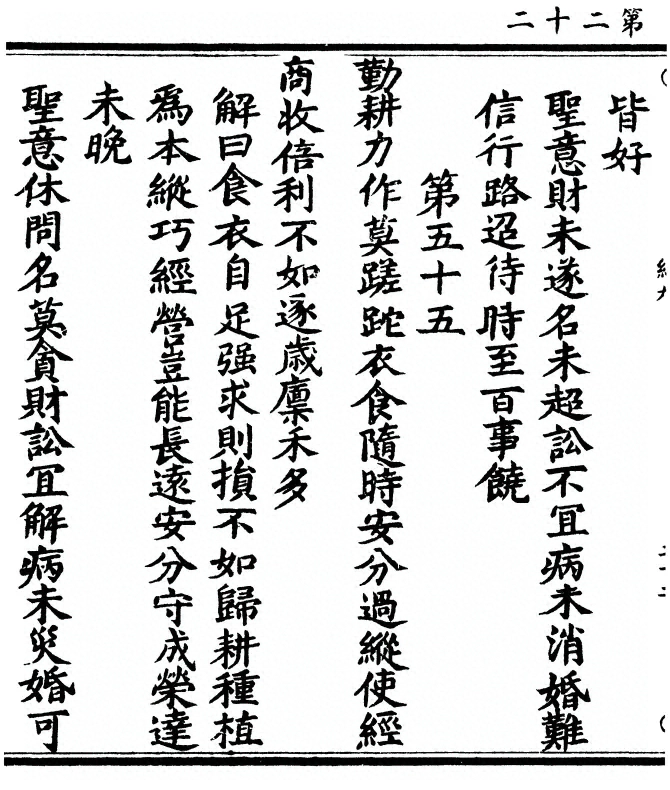 第二十二
皆好
聖意財未遂名未超訟不宜病未消婚難
信行路迢待時至百事饒
第五十五
勤耕力作莫蹉跎衣食隨時安分過縱使經
商收倍利不如逐歲廩禾多
解曰食衣自足强求則損不如歸耕種植
爲本縱巧經營豈能長遠安分守成榮達
未晚
聖意休問名莫貪財訟宜解病未災婚可